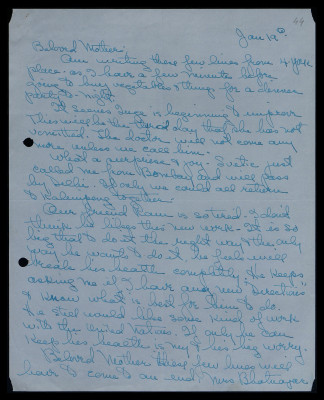 44
Jan 12
Beloved Mother:
Am writing these few lines from 4 your
place - as I have a few minutes before
going to buy vegetables & things for a dinner
party to-night.
It seems Inga is beginning to improve
This will be the third day that she has not
vomitted. The doctor will not come any
more, unless we call him.
What a surprise & joy - Svetic just
called me from Bombay and will pass
by Delhi. If only we could all return
to Kalimpong together.
Our friend Ram is so tired. I don't
think he likes this new work. It is so
hard to do it the right way & the only
way he wants to do it. he feels will
break his health completely. He keeps
asking me if I have any new "Directives"
if I know what is best for him to do.
He said would like some kind of work
with the United Nations. If only he can
keep his health is my & his big worry.
Beloved Mother these few lines will
have to come to an end. Miss Bhatnagar